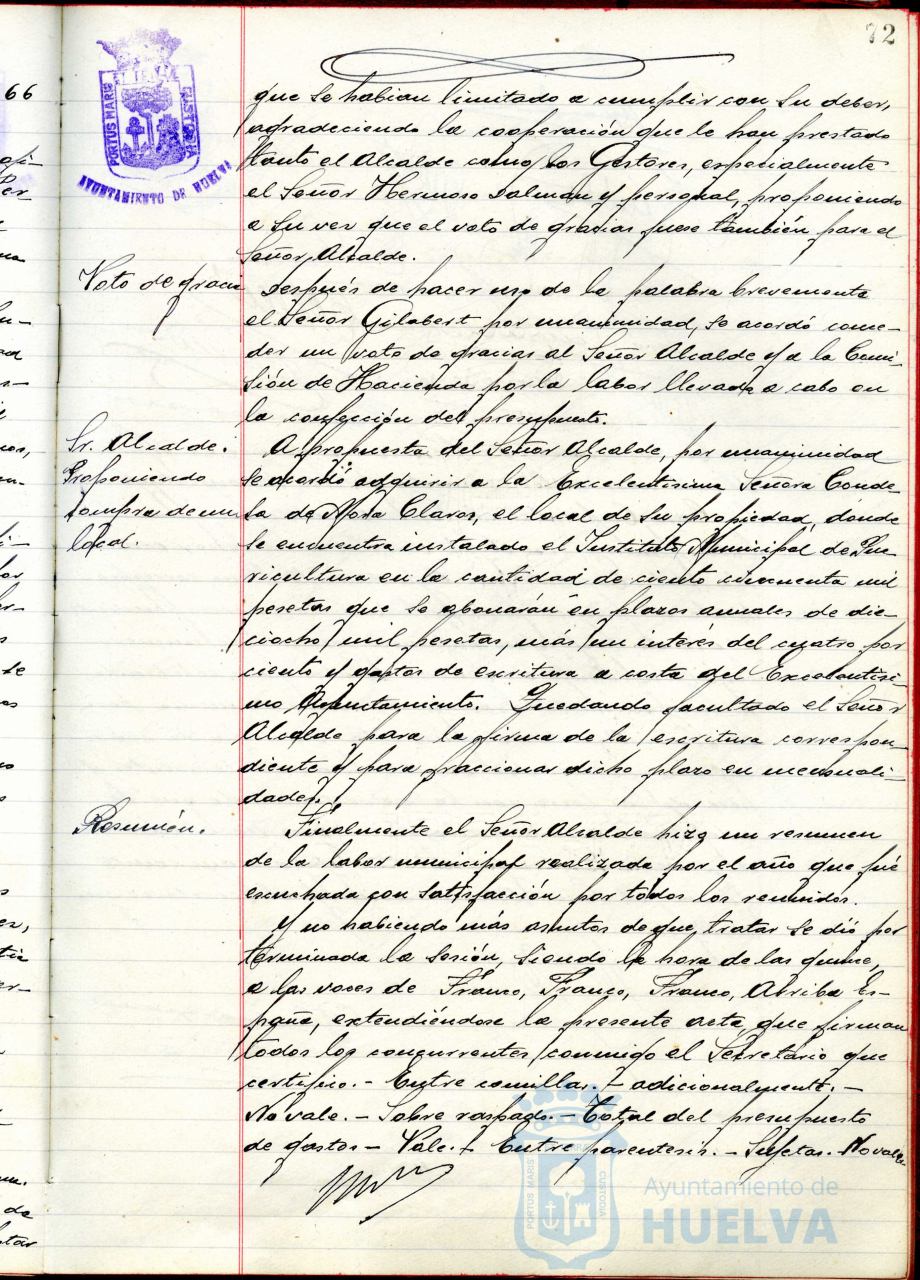 72
66
PORTUS MARIS ET TERRAE CUSTODIA
AYUNTAMIENTO DE HUELVA
que se habian limitado a cumplir con su deber,
agradeciendo la cooperación que le han prestado
tanto el Alcalde como los Gestores, especialmente
el Señor Hermoso Dalman y personal, proponiendo
a su vez que el voto de gracias fuese también para el
Señor Alcalde.
Voto de gracia
Después de hacer uso de la palabra brevemente
el Señor Gilabert por unanimidad, se acordó conce-
der un voto de gracias al Señor Alcalde y a la Comi-
sión de Hacienda por la labor llevada a cabo en
la confección del presupuesto.
Sr. Alcalde.
Proponiendo
compra de un
local.
A propuesta del Señor Alcalde, por unanimidad
se acordó adquirir a la Excelentisima Señora Conde-
sa de Mora Claros, el local de su propiedad, donde
se encuentra instalado el Instituto Municipal de Pue-
ricultura en la cantidad de ciento cincuenta mil
pesetas que se abonarán en plazos anuales de die-
ciocho mil pesetas, más un interés del cuatro por
ciento y gastos de escritura a costa del Excelentisi-
mo Ayuntamiento. Quedando facultado el Señor
Alcalde para la firma de la escritura correspon-
diente y para fraccionar dicho plazo en mensuali-
dades.
Resumén.
Finalmente el Señor Alcalde hizo un resumen
de la labor municipal realizada por el año que fué
escuchada con satisfacción por todos los reunidos.
Y no habiendo más asuntos de que tratar se dió por
terminada la sesión, siendo la hora de las quince,
a las voces de Franco, Franco, Franco, Arriba Es-
paña, extendiéndose la presente acta, que firman
todos los concurrentes conmigo el Secretario que
certifico.- Entre comillas.- adicionalmente.-
No vale.- Sobre raspado.- Total del presupuesto
de gastos - Vale.- Entre parentesis.- Sujetas.- No vale.
PORTUS MARIS CUSTODIA
Ayuntamiento de
HUELVA